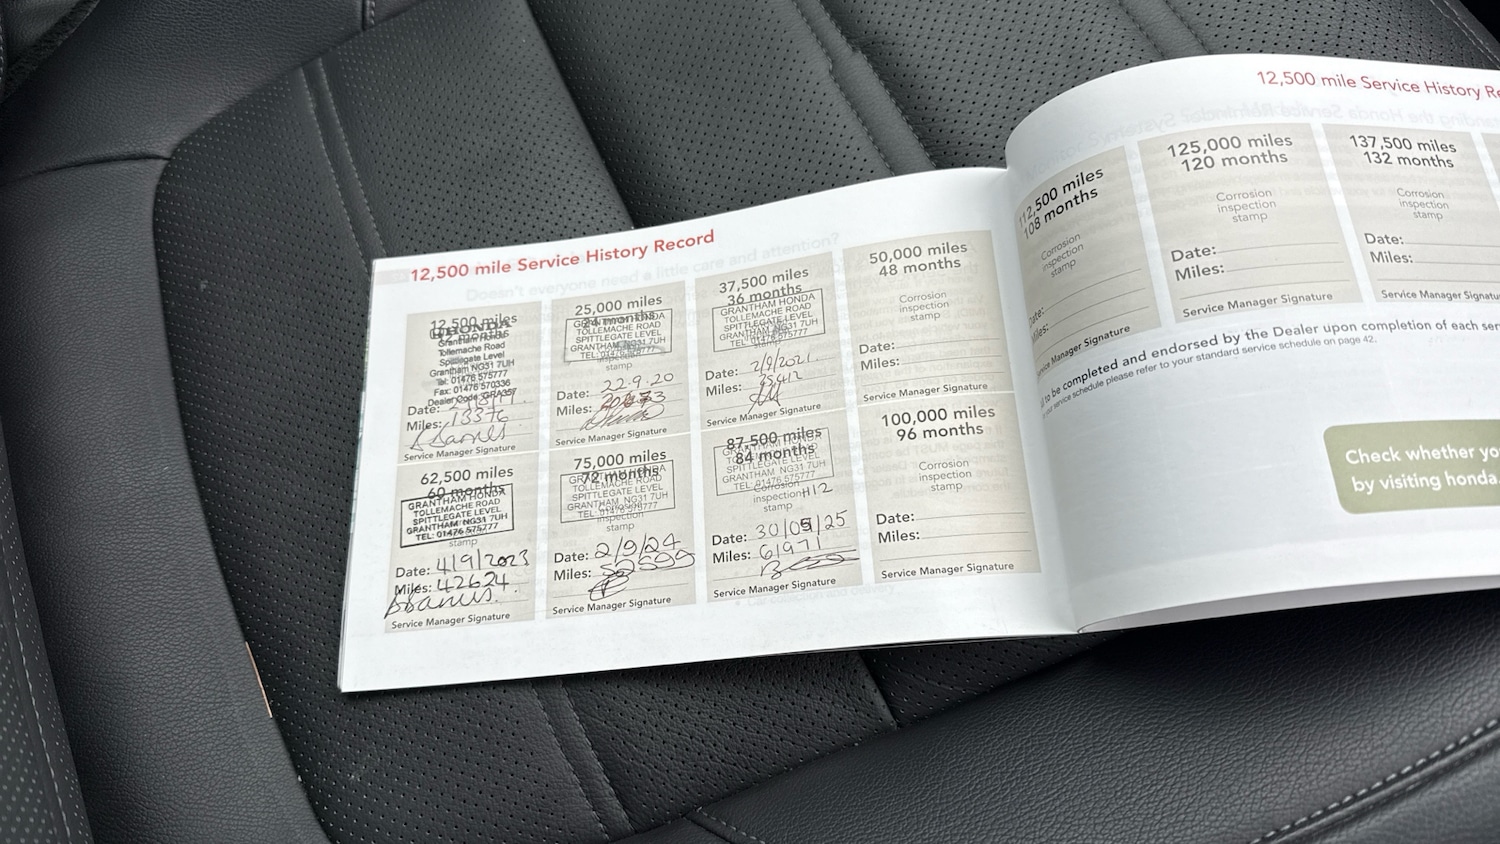 12,500 mile Service History Record
12,500 miles
HONDA
Grantham Honda
Tollemache Road
Spittlegate Level
Grantham NG31 7UH
Tel: 01476 575777
Fax: 01476 570336
Dealer Code: GRA357
Date:
Miles: 13376
Service Manager Signature
25,000 miles
24 months
GRANTHAM HONDA
TOLLEMACHE ROAD
SPITTLEGATE LEVEL
GRANTHAM NG31 7UH
TEL: 01476 575777
stamp
Date: 22.9.20
Miles:
Service Manager Signature
37,500 miles
36 months
GRANTHAM HONDA
TOLLEMACHE ROAD
SPITTLEGATE LEVEL
GRANTHAM NG31 7UH
TEL: 01476 575777
Date: 2/9/2021
Miles:
Service Manager Signature
50,000 miles
48 months
Corrosion
inspection
stamp
Date:
Miles:
Service Manager Signature
62,500 miles
60 months
GRANTHAM HONDA
TOLLEMACHE ROAD
SPITTLEGATE LEVEL
GRANTHAM NG31 7UH
TEL: 01476 575777
stamp
Date: 4/9/2023
Miles: 42624
Service Manager Signature
75,000 miles
72 months
GRANTHAM HONDA
TOLLEMACHE ROAD
SPITTLEGATE LEVEL
GRANTHAM NG31 7UH
TEL: 01476 575777
inspection
stamp
Date: 2/9/24
Miles: 52599
Service Manager Signature
87,500 miles
84 months
GRANTHAM HONDA
TOLLEMACHE ROAD
SPITTLEGATE LEVEL
GRANTHAM NG31 7UH
TEL: 01476 575777
Corrosion
inspection H12
stamp
Date: 30/09/25
Miles: 61971
Service Manager Signature
100,000 miles
96 months
Corrosion
inspection
stamp
Date:
Miles:
Service Manager Signature
12,500 mile Service History
112,500 miles
108 months
Corrosion
inspection
stamp
Date:
Miles:
Service Manager Signature
125,000 miles
120 months
Corrosion
inspection
stamp
Date:
Miles:
Service Manager Signature
137,500 miles
132 months
Corrosion
inspection
stamp
Date:
Miles:
Service Manager
to be completed and endorsed by the Dealer upon completion of each
service schedule please refer to your standard service schedule on page 42.
Check whether
by visiting honda.